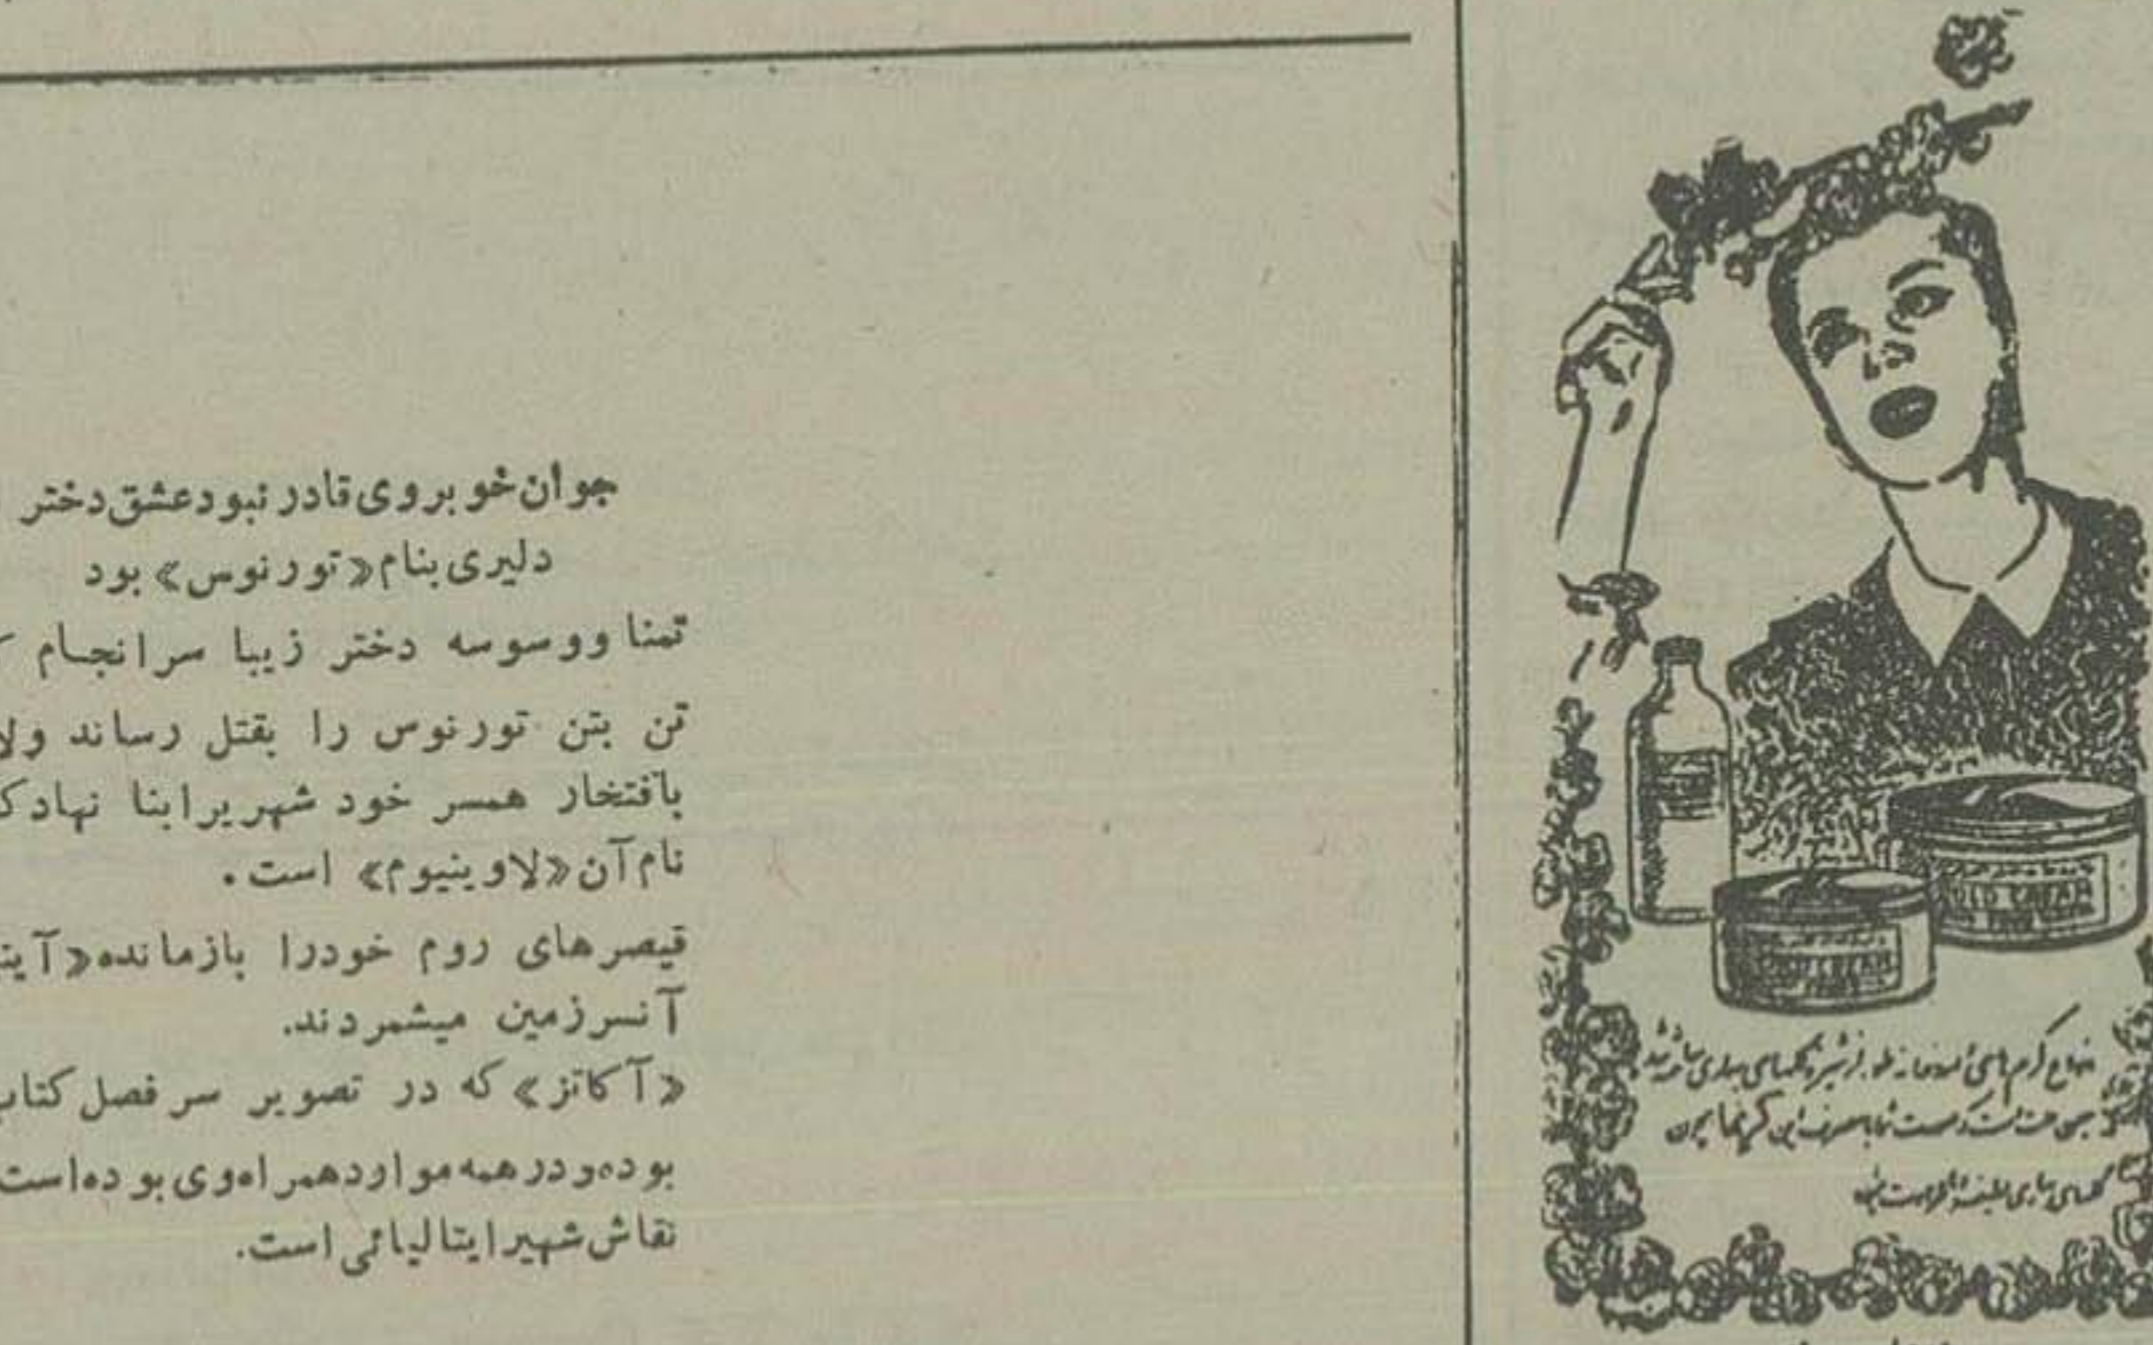 جوان خوبروی قادر نبود عشق دختر
دلیری بنام «تورنوس» بود
تمنا ووسوسه دختر زیبا سرانجام
تن بتن تورنوس را بقتل رساند ولا
بافتخار همسر خود شهریرا بنا نهاد ک
نام آن «لاوینیوم» است.
قیصرهای روم خودرا بازمانده «آین
آنسرزمین میشمردند.
«آکاتز» که در تصویر سر فصل کتاب
بوده و در همه موارد همراه وی بوده است
نقاش شهیر ایتالیائی است.
COLD CREAM
COLD CREAM
انواع کرم های
گلهای بهاری